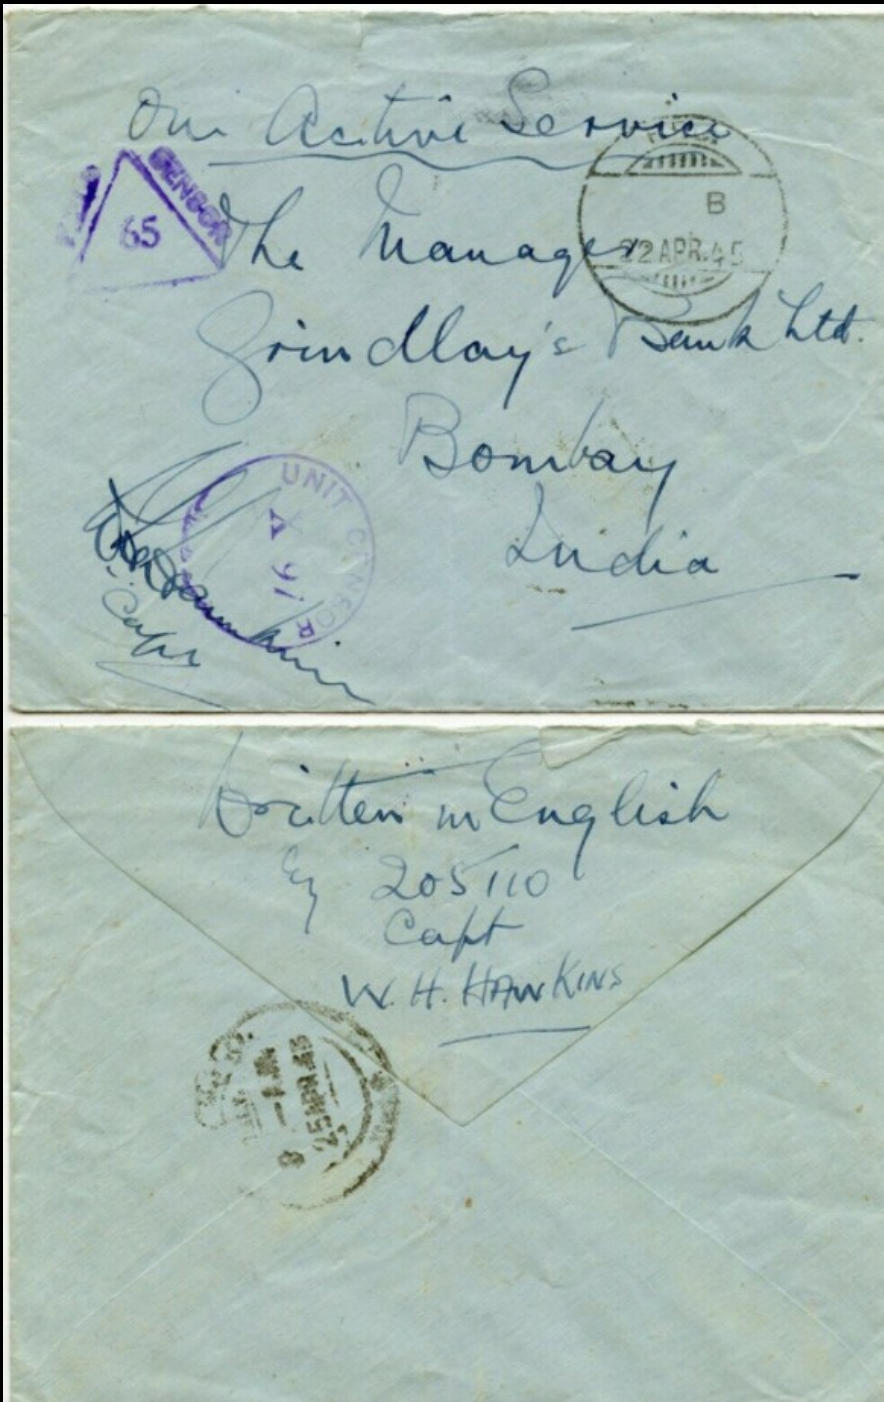 On Active Service
CENSOR
65
B
22 APR. 45
The Manager
Grindlay's Bank Ltd.
Bombay
India
UNIT CENSOR
A 91
Capt
Written in English
by 205110
Capt
W. H. HAWKINS
25 APR 45